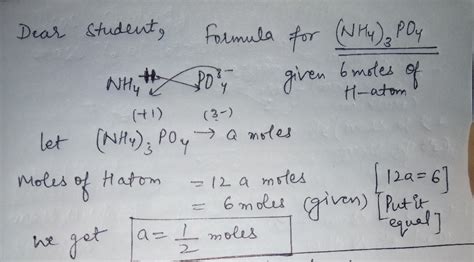 Dear Student, Formula for (NH4)3PO4
NH4+ PO4 3- given 6 moles of
H-atom
(+1) (3-)
let (NH4)3PO4 → a moles
Moles of H atom = 12 a moles [12a=6]
= 6 moles (given) [Put it equal]
we get a = 1/2 moles